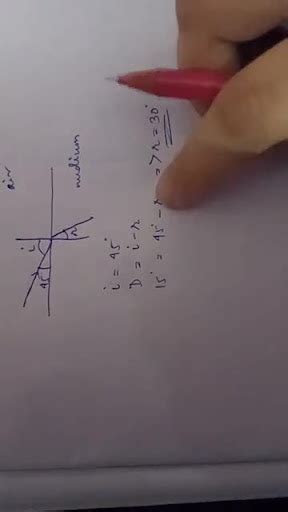 air
medium
i
r
45°
i = 45°
D = i - r
15° = 45° - r => r = 30°